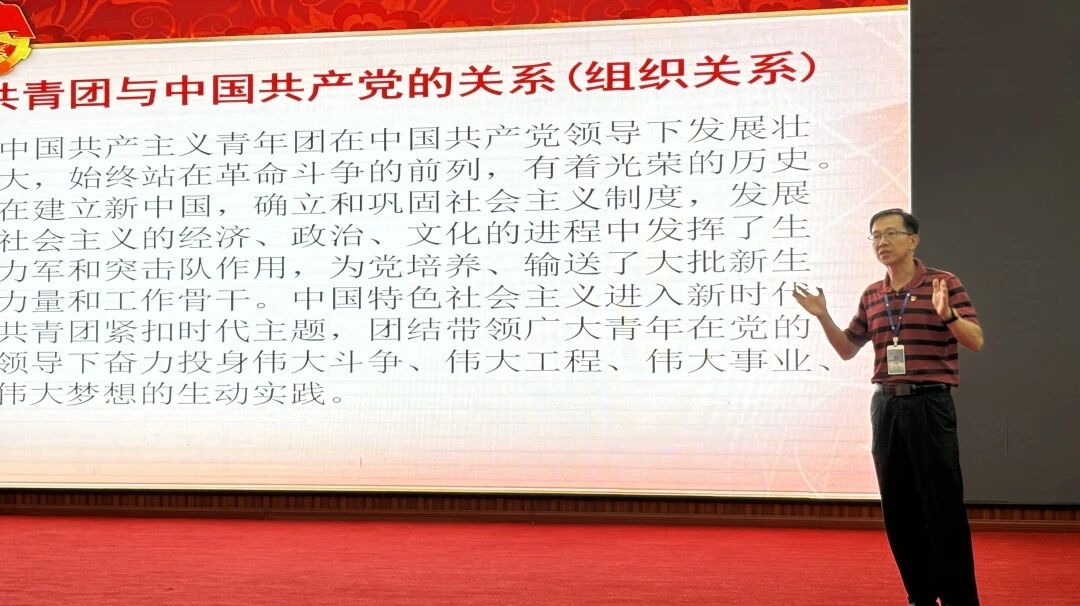 共青团与中国共产党的关系(组织关系)
中国共产主义青年团在中国共产党领导下发展壮
大，始终站在革命斗争的前列，有着光荣的历史。
在建立新中国，确立和巩固社会主义制度，发展
社会主义的经济、政治、文化的进程中发挥了生
力军和突击队作用，为党培养、输送了大批新生
力量和工作骨干。中国特色社会主义进入新时代
共青团紧扣时代主题，团结带领广大青年在党的
领导下奋力投身伟大斗争、伟大工程、伟大事业、
伟大梦想的生动实践。